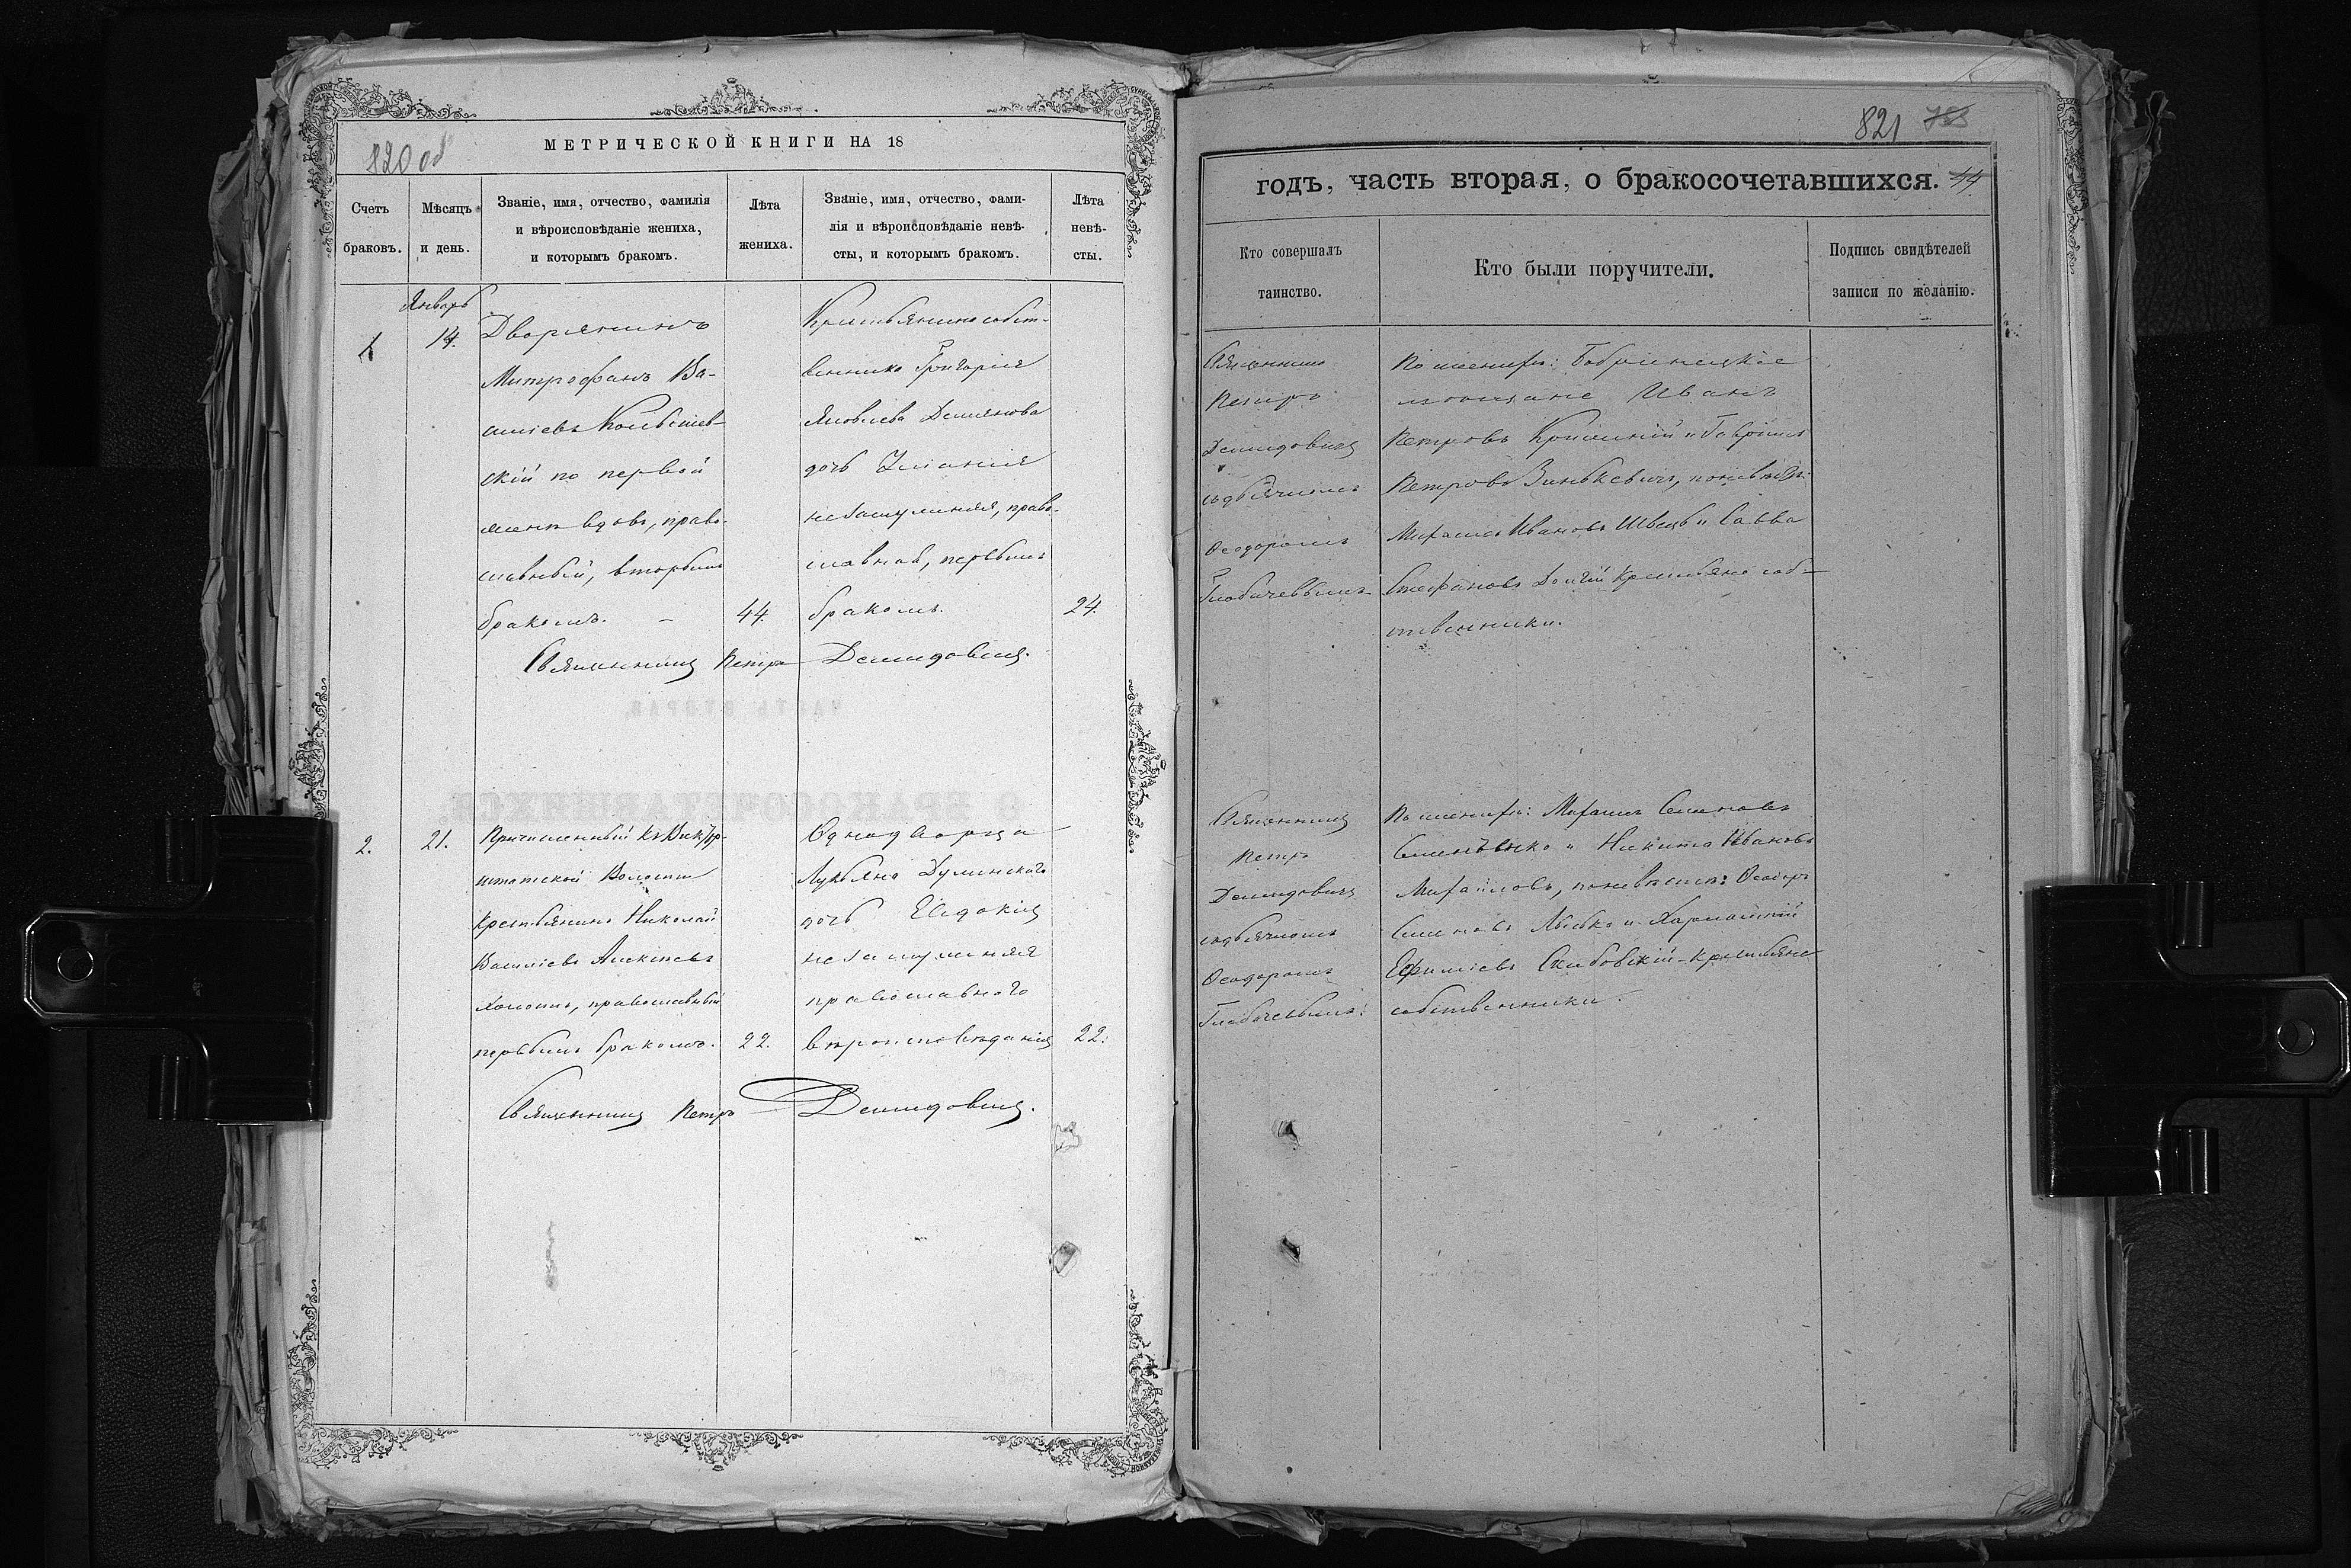 820 об
МЕТРИЧЕСКОЙ КНИГИ НА 18
Счетъ браковъ.
Мѣсяцъ и день.
Званіе, имя, отчество, фамилія
и вѣроисповѣданіе жениха,
и которымъ бракомъ.
Лѣта
жениха.
Званіе, имя, отчество, фами-
лія и вѣроисповѣданіе невѣ-
сты, и которымъ бракомъ.
Лѣта
невѣ-
сты.
Январь
1
14.
Дворянинъ
Митрофанъ Ва-
силіевъ
скій по первой
женѣ вдовъ, право-
славный, вторымъ
бракомъ. –
44.
Крестьянина собст-
венника Григорія
Яковлева Демянова
дочь Уліанія
незамужняя, право-
славная, первымъ
бракомъ.
24.
Священникъ Петръ Демидовичъ.
2.
21.
Причисленный къ
Волости
крестьянинъ Николай
Василіевъ Алексіевъ
холостъ, православный
первымъ бракомъ.
22.
Однодворца
Лукьяна Думинскаго
дочь Евдокія
незамужняя
православнаго
вѣроисповѣданія
22.
Священникъ Петръ Демидовичъ.
821
44
годъ, часть вторая, о бракосочетавшихся.
Кто совершалъ
таинство.
Кто были поручители.
Подпись свидѣтелей
записи по желанію.
Священникъ
Петръ
Демидовичъ
съ дьячкомъ
Ѳеодоромъ
Глобачевымъ
По женихѣ: Бобринецкіе
мѣщане Иванъ
Петровъ и Гавріилъ
Петровъ Зинькевичъ, по невѣстѣ:
Михаилъ Ивановъ Швецъ и Савва
Стефановъ Долгій крестьяне соб-
ственники.
Священникъ
Петръ
Демидовичъ
съ дьячкомъ
Ѳеодоромъ
Глобачевымъ.
По женихѣ: Михаилъ Семеновъ
Семенѣнко и Никита Ивановъ
Михайловъ, по невѣстѣ: Ѳеодоръ
Семеновъ и Харлампій
Ефиміевъ Скибовскій крестьяне
собственники.